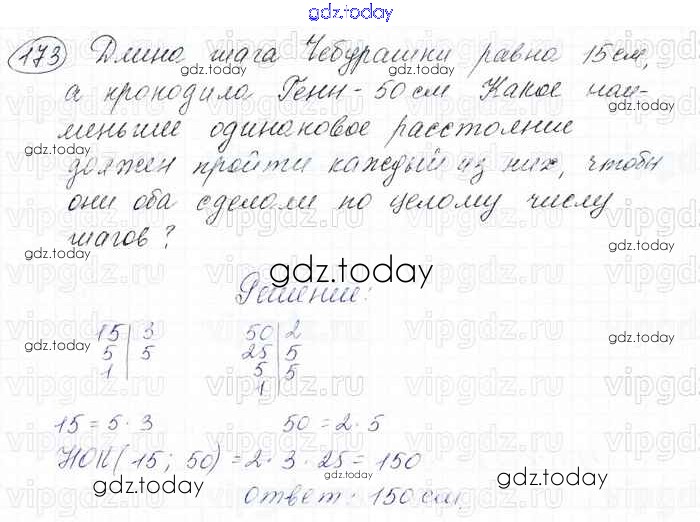 gdz.today
173 Длина шага Чебурашки равна 15 см,
gdz.today
а крокодила Гены - 50 см Какое наи-
меньшее одинаковое расстояние
gdz.today
должен пройти каждый из них, чтобы
они оба сделали по целому числу
шагов?
gdz.today
Решение:
15 | 3 50 | 2
5 | 5 25 | 5
1 5 | 5
1
gdz.today
15 = 5 · 3 50 = 2 · 5
НОК (15; 50) = 2 · 3 · 25 = 150
gdz.today
ответ: 150 см.
gdz.today
vipgdz.ru